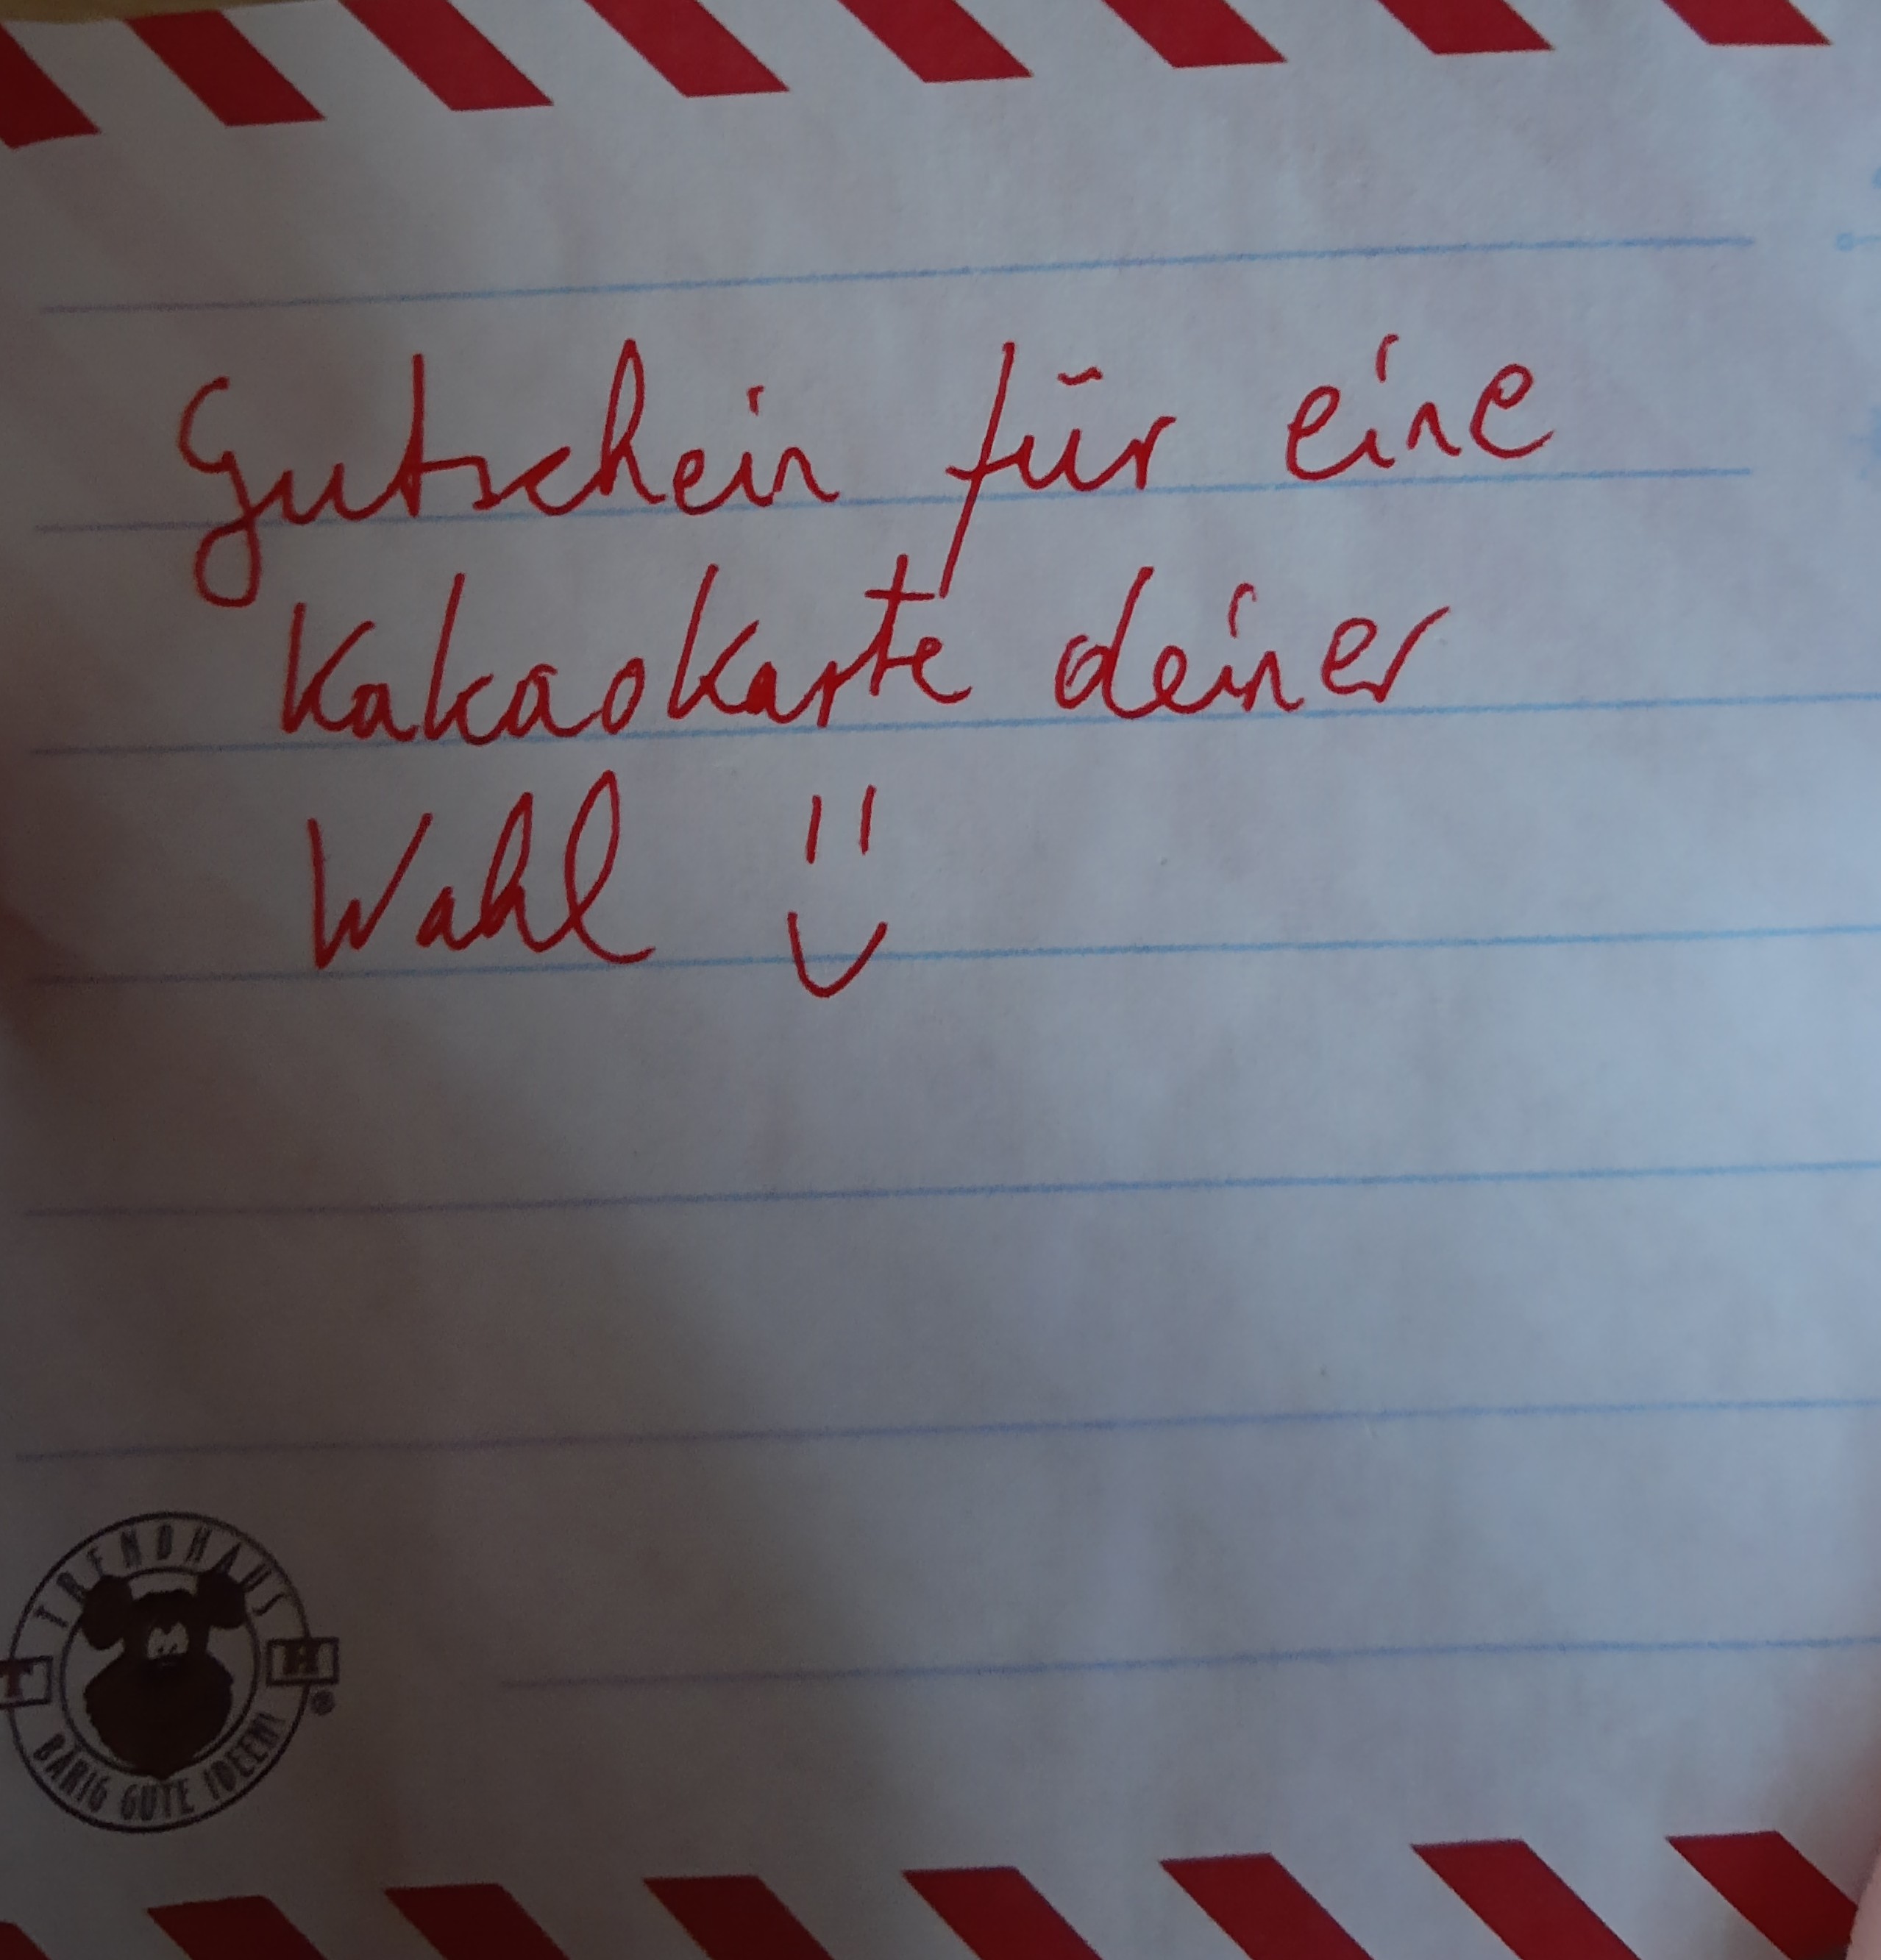 Gutschein für eine
Kakaokarte deiner
Wahl :)
TRENDHAUS
T H ®
BÄRIG GUTE IDEEN!